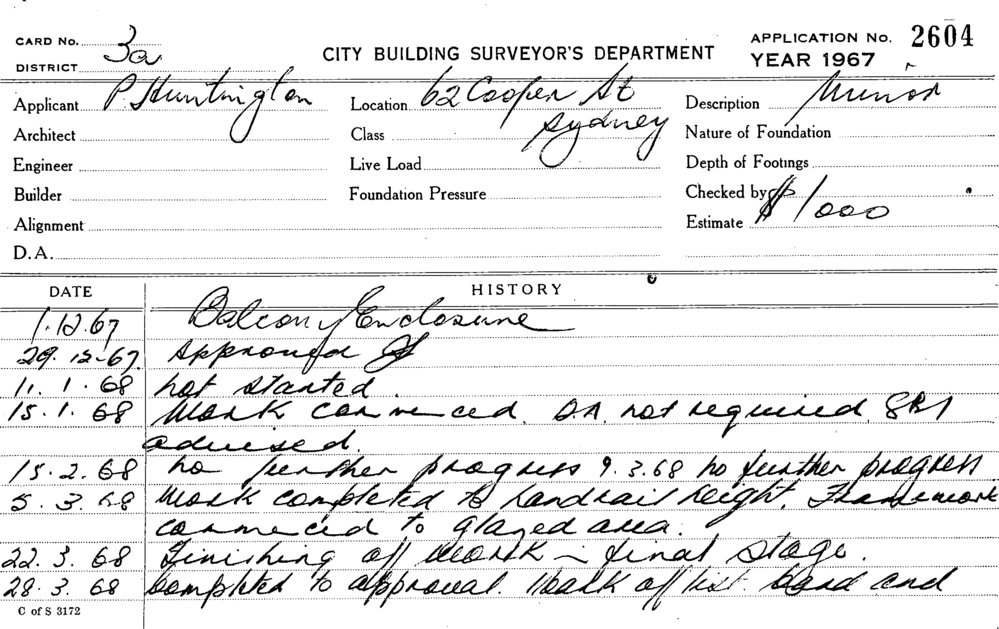 CARD No. 3a
DISTRICT
CITY BUILDING SURVEYOR'S DEPARTMENT
APPLICATION No. 2604
YEAR 1967
Applicant P. Huntington
Location 62 Cooper St
Sydney
Description Minor
Architect
Class
Nature of Foundation
Engineer
Live Load
Depth of Footings
Builder
Foundation Pressure
Checked by
Alignment
Estimate $1000
D.A.
DATE HISTORY
1.12.67 Balcony Enclosure
29.12-67. Approved
11.1.68 not started.
15.1.68 Work commenced. D.A. not required
advised.
15.2.68 no further progress 9.3.68 no further progress
5.3.68 Work completed to handrail height. Framework
commenced to glazed area.
22.3.68 Finishing off work - final stage.
28.3.68 Completed to approval. off list. Card end
C of S 3172